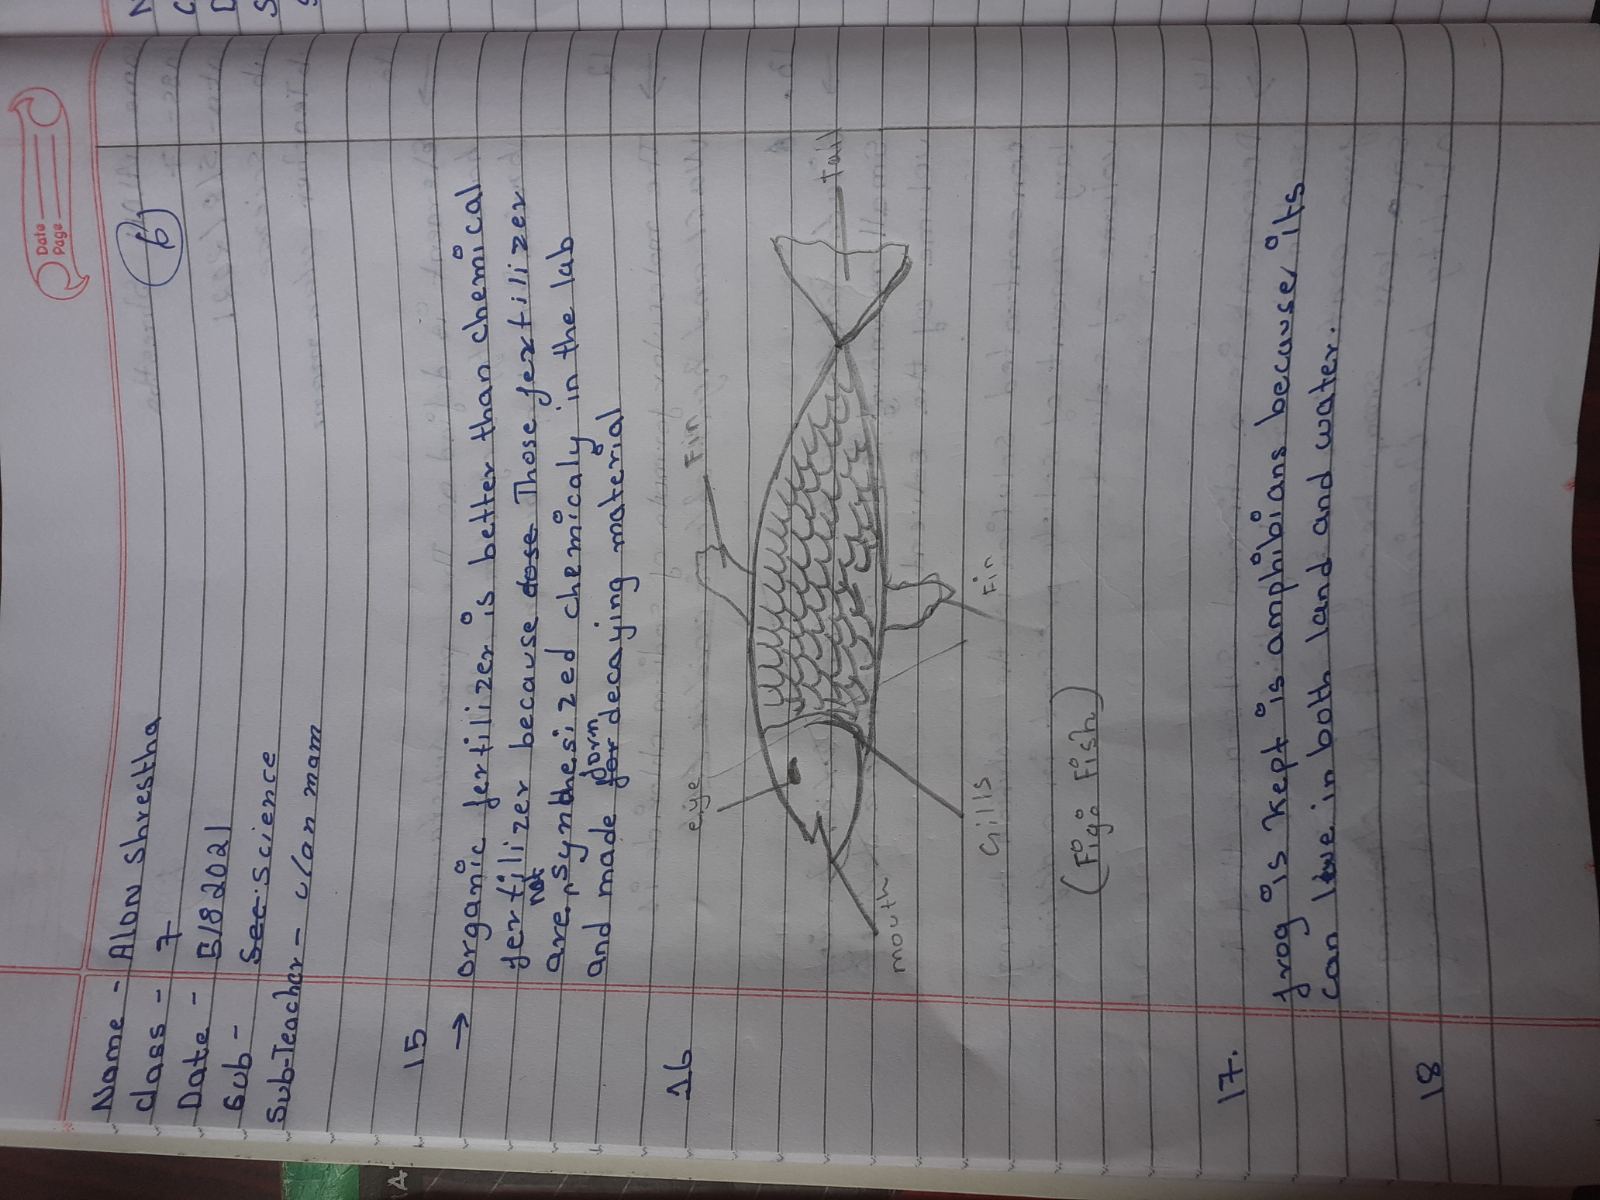 Date
Page
6
Name - Alon Shrestha
class - 7
Date - 5/8 2021
Sub - Sec: Science
Sub-Teacher - mam
15
→ organic fertilizer is better than chemical
fertilizer because dose Those fertilizer
are not synthesized chemicaly in the lab
and made for form decaying material
16
eye
Fin
tail
mouth
Gills
Fin
(Fig: Fish)
17. frog is kept is amphibians because its
can live in both land and water.
18